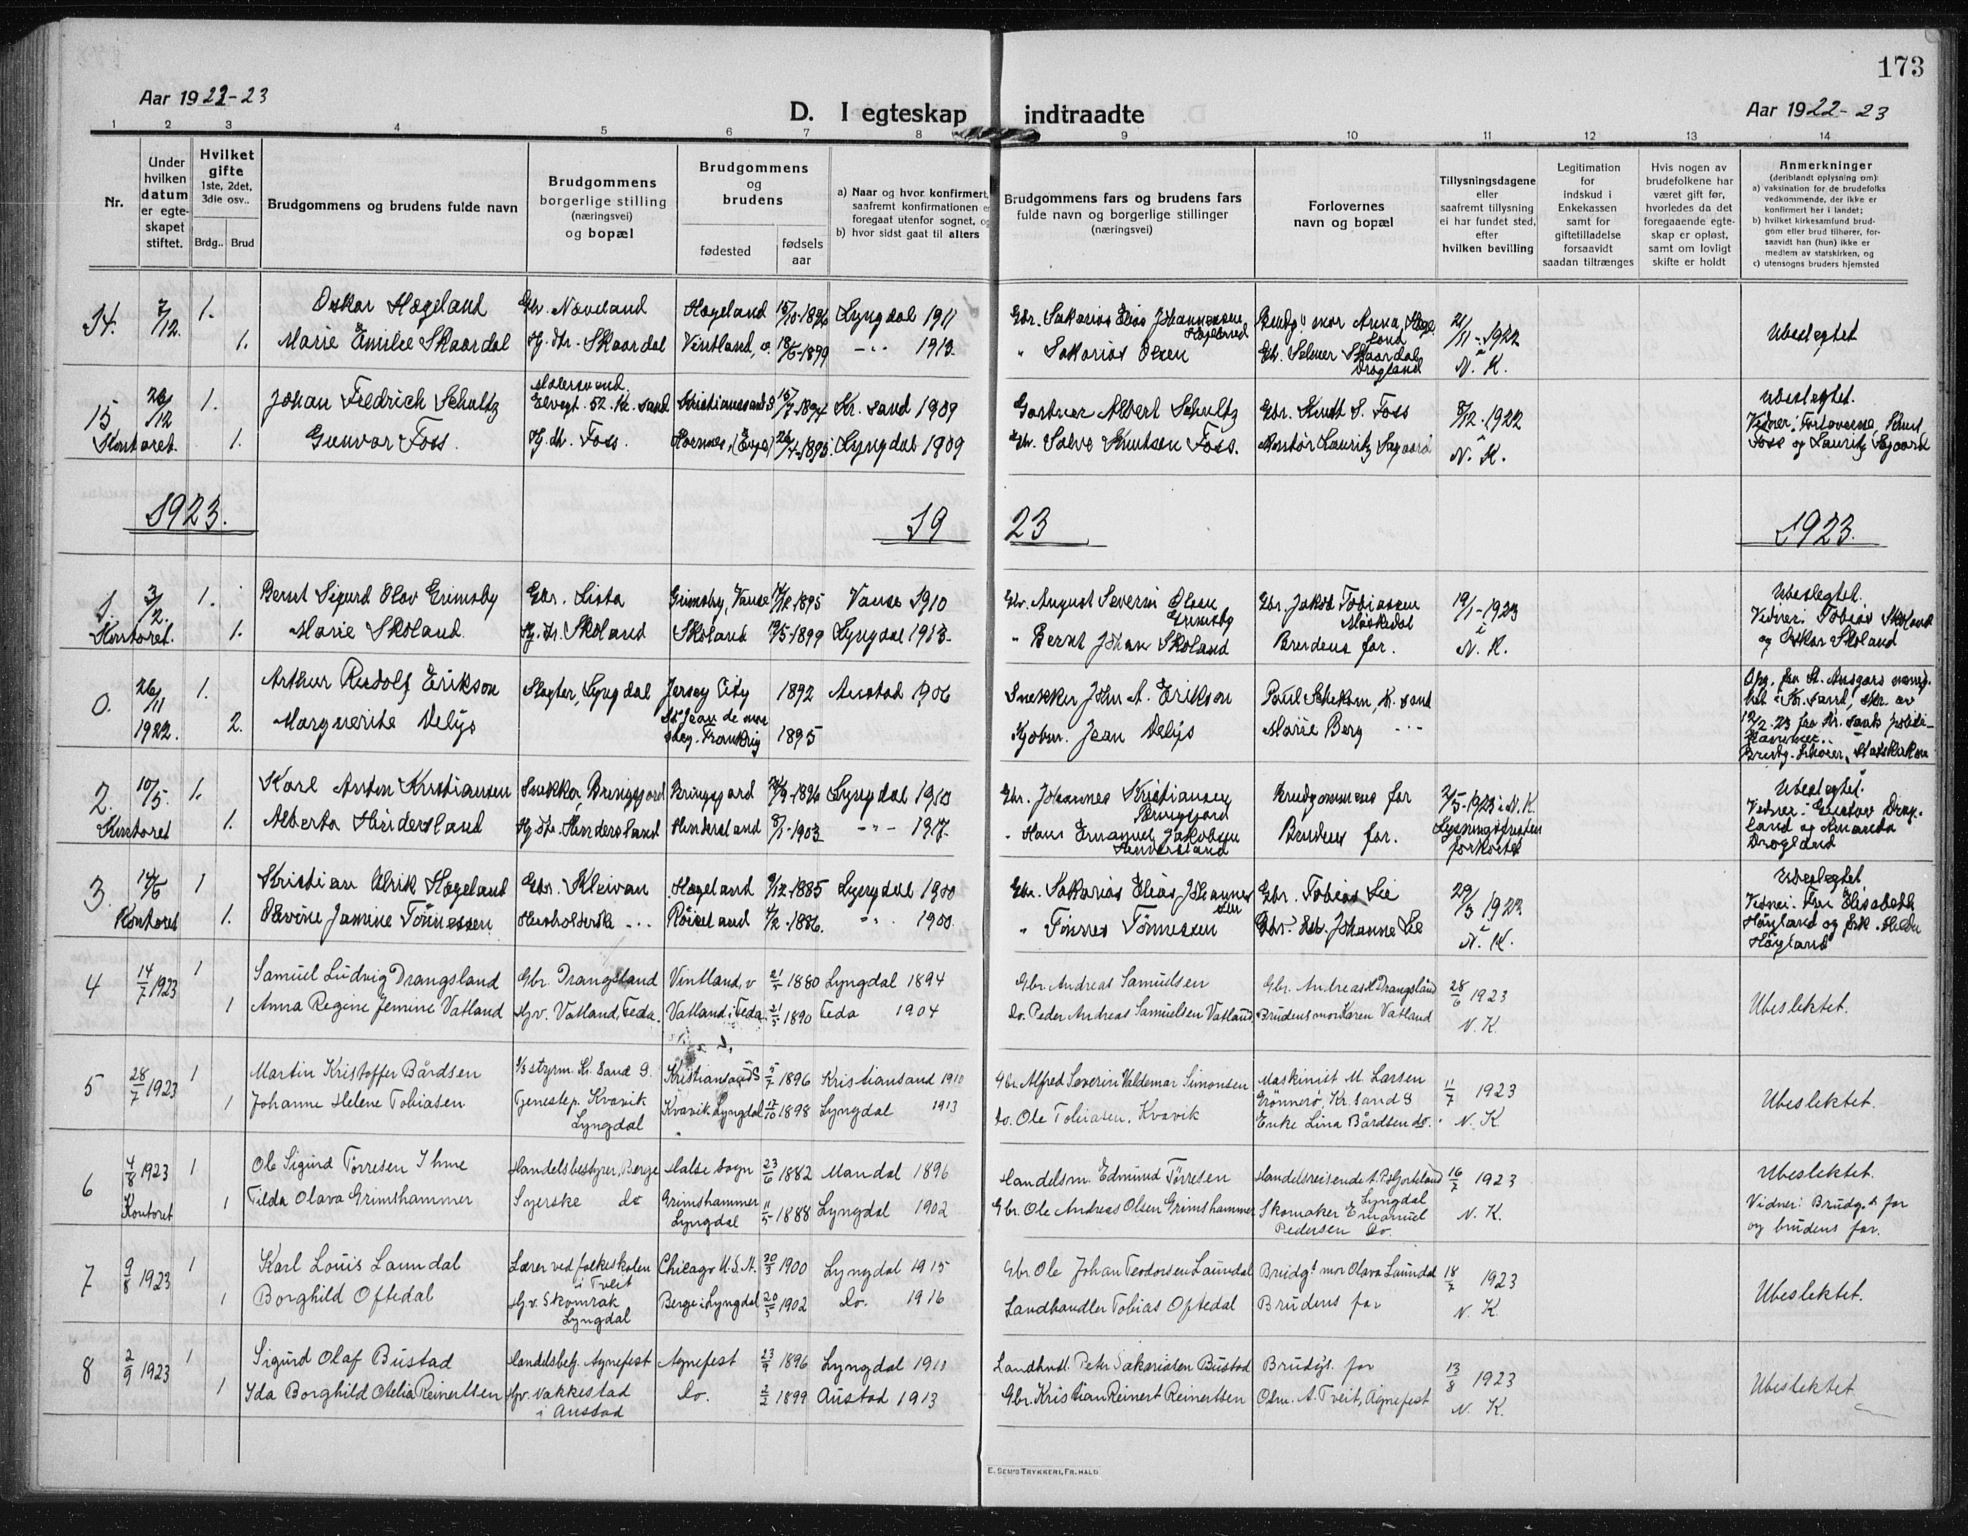 173
Aar 1922-23
D. I egteskap indtraadte
Aar 1922-23
1 2 3 4 5 6 7 8 9 10 11 12 13 14
Nr.
Under hvilken datum er egteskapet stiftet.
Hvilket gifte 1ste, 2det, 3die osv..
Brdg.. Brud
Brudgommens og brudens fulde navn
Brudgommens borgerlige stilling (næringsvei) og bopæl
Brudgommens og brudens
fødested
fødsels aar
a) Naar og hvor konfirmert, saafremt konfirmationen er foregaat utenfor sognet, og
b) hvor sidst gaat til alters
Brudgommens fars og brudens fars fulde navn og borgerlige stillinger (næringsvei)
Forlovernes navn og bopæl
Tillysningsdagene eller saafremt tillysning ei har fundet sted, efter hvilken bevilling
Legitimation for indskud i Enkekassen samt for giftetilladelse forsaavidt saadan tiltrænges
Hvis nogen av brudefolkene har været gift før, hvorledes da det foregaaende egteskap er opløst, samt om lovligt skifte er holdt
Anmerkninger (deriblandt oplysning om):
a) vaksination for de brudefolks vedkommende, der ikke er konfirmert her i landet;
b) hvilket kirkesamfund brudgom eller brud tilhører, forsaavidt han (hun) ikke er medlem av statskirken, og
c) utensogns bruders hjemsted
14. 7/12. 1. Oskar Hægeland Gbr. Naveland Hægeland 15/10-1896 Lyngdal 1911 Gbr. Sakarias Elias Johannessen Hægeland Brudg.s mor Anna Hægeland 21/11-1922 Ubeslegtet
1. Marie Emilie Skaardal Hj. dtr. Skaardal Vintland, v. 18/5-1899 -"- 1913. " Sakarias Olsen Gbr. Selmer Skaardal Drogland N. K.
15 26/12 1. Johan Fredrich Schultz Malersvend Elvegt. 52. Kr. sand Kristianssand S 15/7-1894 Kr. sand 1909 Gartner Albert Schultz Gbr. Knut S. Foss 8/12-1922 Ubeslegtet.
Kontoret. 1. Gunvor Foss. Hj. dt. Foss. 1895 Lyngdal 1909 Gbr. Salve Knutsen Foss. Montør Lauritz Aagaard i N. K. Vidner: Forloverne, Knut Foss og Lauritz Aagaard
1923. 19 23 1923.
1. 3/2. 1. Bernt Sigurd Olav Grimsby Gbr. Lista Grimsby, Vanse 1895 Vanse 1910 Gbr. August Severin Olsen Grimsby Gbr. Jakob Tobiassen 19/1-1923 Ubeslegtet.
Kontoret. 1. Marie Skoland Hj. dr. Skoland Skoland 19/5-1899 Lyngdal 1913. " Bernt Johan Skoland Brudens far. i N. K. Vidner: Tobias Skoland og Oskar Skoland
0. 26/11 1. Arthur Rudolf Erikson Slagter, Lyngdal Jersey City 1892 Austad 1906 Snekker John A. Erikson Paul Scheken, Kr. sand
1922. 2. Marguerite Delys St. Jean de 1895 Kjøbm. Jean Delys Marie Berg -"-
Opg. fra St. Ansgars menighet i Kr. sand, skr. av 12/2-23 fra Kr. sands politikammer.
2. 10/5. 1. Karl Anton Kristiansen Snekker, Bringsjord Bringsjord 1896 Lyngdal 1910 Gbr. Johannes Kristiansen Bringsjord Brudgommens far 2/5-1923 i N. K Ubeslegtet.
Kontoret 1. Alberta Hindersland Hj. dtr. Hindersland Hindersland 8/1-1903 -"- 1917. " Hans Emanuel Jakobsen Hindersland Brudens far. Lysningsfristen forkortet Vidner: Gustav Drogland og Amanda Drogland
3. 14/5 1 Kristian Ulrik Hægeland Gbr. Kleivan Hægeland 9/12-1885 Lyngdal 1900 Gbr. Sakarias Elias Johannessen Gbr. Tobias Lie 29/3 1923 Ubeslegtet
Kontoret 1. Olevine Jamine Tønnessen Husholderske -"- Røiseland 1886. -"- 1900. " Tønnes Tønnesen Johanne Lie N. K. Vidner: Fru Elisabeth Høyland og frk. Hilda Høyland
4 14/7 1923 1 Samuel Ludvig Drangsland Gbr. Drangsland Vintland, v 1880 Lyngdal 1894 Gbr. Andreas Samuelsen Gbr. Andreas Drangsland 28/6 1923
1 Anna Regine Jemine Vatland Hjv. Vatland, Feda. Vatland i Feda. 21/5 1890 Feda 1904 do. Peder Andreas Samuelsen Vatland Brudens mor Karen Vatland N. K Ubeslektet.
5 28/7 1923 1 Martin Kristoffer Bårdsen styrm. Kr. Sand S. Kristiansand S 5/7 1896 Kristiansand 1910 Gbr. Alfred Severin Valdemar Simonsen Maskinist M. Larsen Grønnerø, Kr. sand S 11/7 1923
1 Johanne Helene Tobiasen Tjenestep. Kvavik Lyngdal Kvavik Lyngdal 17/10 1898 Lyngdal 1913 do. Ole Tobiasen, Kvavik Enke Lina Bårdsen do. N. K Ubeslektet.
6 4/8 1923 1 Ole Sigurd Tørresen Ihme Handelsbestyrer, Berge Halse sogn 23/6 1882 Mandal 1896 Handelsm. Edmund Tørresen Handelsreisende Lyngdal 16/7 1923 Ubeslektet.
Kontoret 1 Tilda Olava Grimshammer Syerske do Grimshammer Lyngdal 11/5 1888 Lyngdal 1902 Gbr. Ole Andreas Olsen Grimshammer Skomaker Emanuel Pedersen do. N. K. Vidner: Brudg.s far og brudens far.
7 9/8 1923 1 Karl Louis Laundal Lærer ved folkeskolen i Tveit Chicago U. S. A. 20/3 1900 Lyngdal 1915 Gbr Ole Johan Teodorsen Laundal Brudg.s mor Olava Laundal 18/7 1923
1 Borghild Oftedal Hjv. Skomrak Lyngdal Berge i Lyngdal 20/5 1902 do. 1916 Landhandler Tobias Oftedal Brudens far N. K. Ubeslektet.
8 2/9 1923 1 Sigurd Olaf Bustad Handelsbetj. Agnefest Agnefest 23/9 1896 Lyngdal 1911 Landhndl. Petr Sakariasen Bustad Brudgs. far 13/8 1923
1 Ida Borghild Otelia Reinertsen Hjv. Vakkestad i Austad do. 2/2 1899 Austad 1913 Gbr. Kristian Reinert Reinertsen A. Tveit, Agnefest N. K. Ubeslektet
E. SEM'S TRYKKERI, FR. HALD